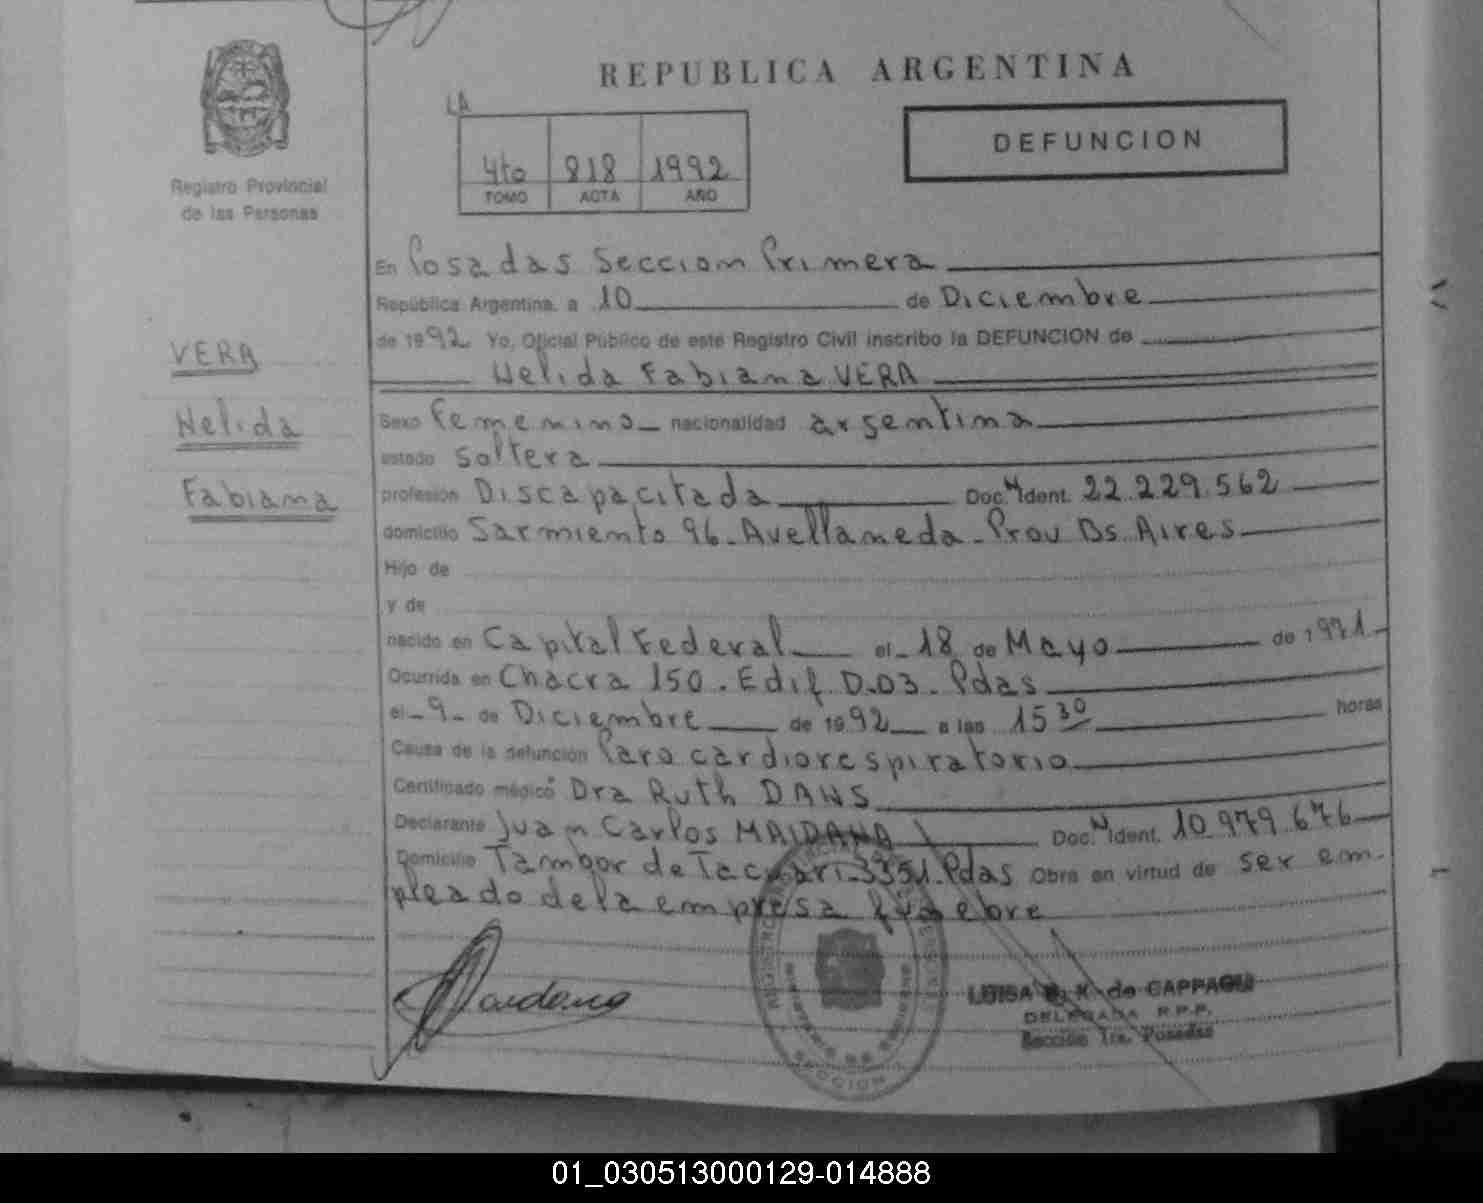 REPUBLICA ARGENTINA
LA
DEFUNCION
4to 818 1992
TOMO ACTA AÑO
Registro Provincial
de las Personas
En Posadas Seccion Primera
República Argentina, a 10 de Diciembre
de 1992 Yo, Oficial Público de este Registro Civil inscribo la DEFUNCION de
Nelida Fabiana VERA
VERA
Nelida
Fabiana
Sexo Femenino nacionalidad argentina
estado Soltera
profesión Discapacitada Doc. N Ident. 22.229.562
domicilio Sarmiento 96 - Avellaneda - Prov Bs. Aires
Hijo de
y de
nacido en Capital Federal el 18 de Mayo de 1971
Ocurrida en Chacra 150. Edif. D.03. Pdas
el 9 de Diciembre de 1992 a las 15 30 horas
Causa de la defunción Paro cardiorespiratorio
Certificado médico Dra Ruth DAWS
Declarante Juan Carlos MAIDANA Doc. N Ident. 10.979.676
Domicilio Tambor de Tacuari 3351. Pdas Obra en virtud de ser em-
pleado de la empresa funebre
Maidana
LUISA de CAPPAGLI
DELEGADA R.P.P.
Sección 1ra. Posadas
SECCION
01_030513000129-014888